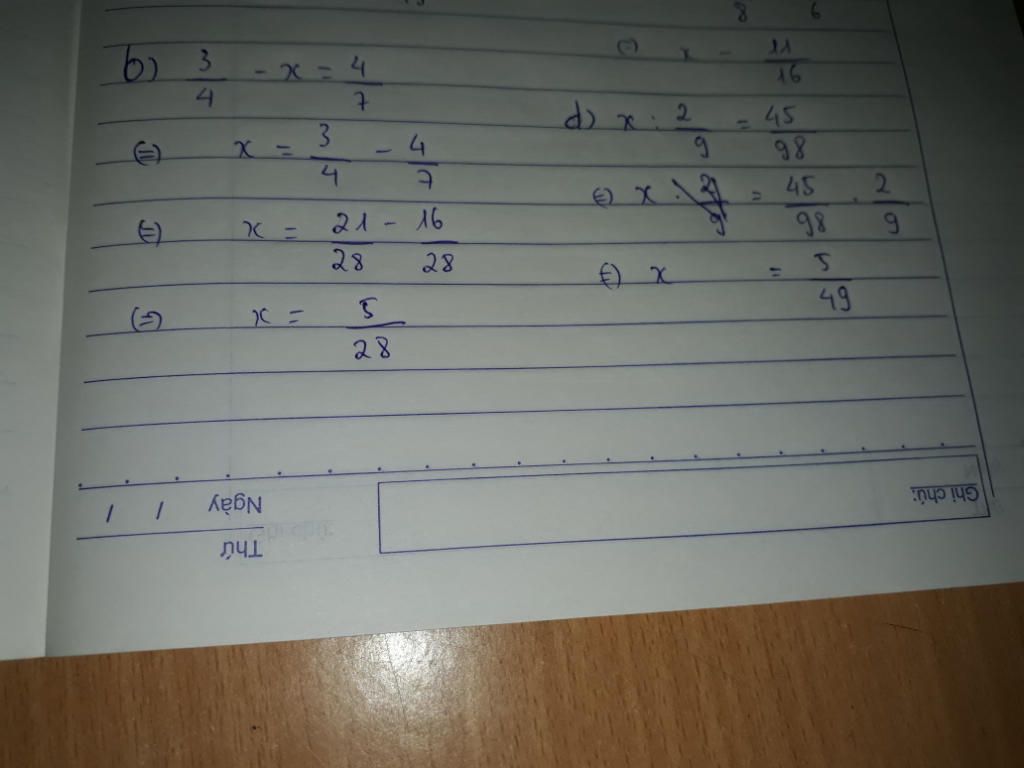 8 6
x - 11/16
b) 3/4 - x = 4/7
(=) x = 3/4 - 4/7
(=) x = 21/28 - 16/28
(=) x = 5/28
d) x : 2/9 = 45/98
x . 2/9 = 45/98 . 2/9
x = 5/49
Ghi chú:
Ngày / /
Thứ